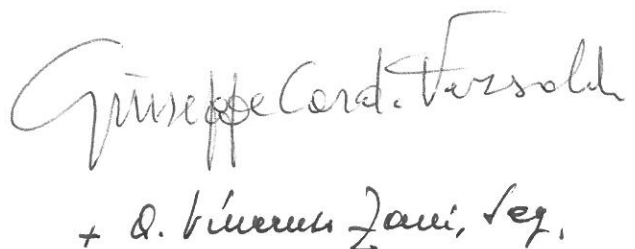 Giuseppe Card. Versaldi
+ A. Vincenzo Zani, Seg.